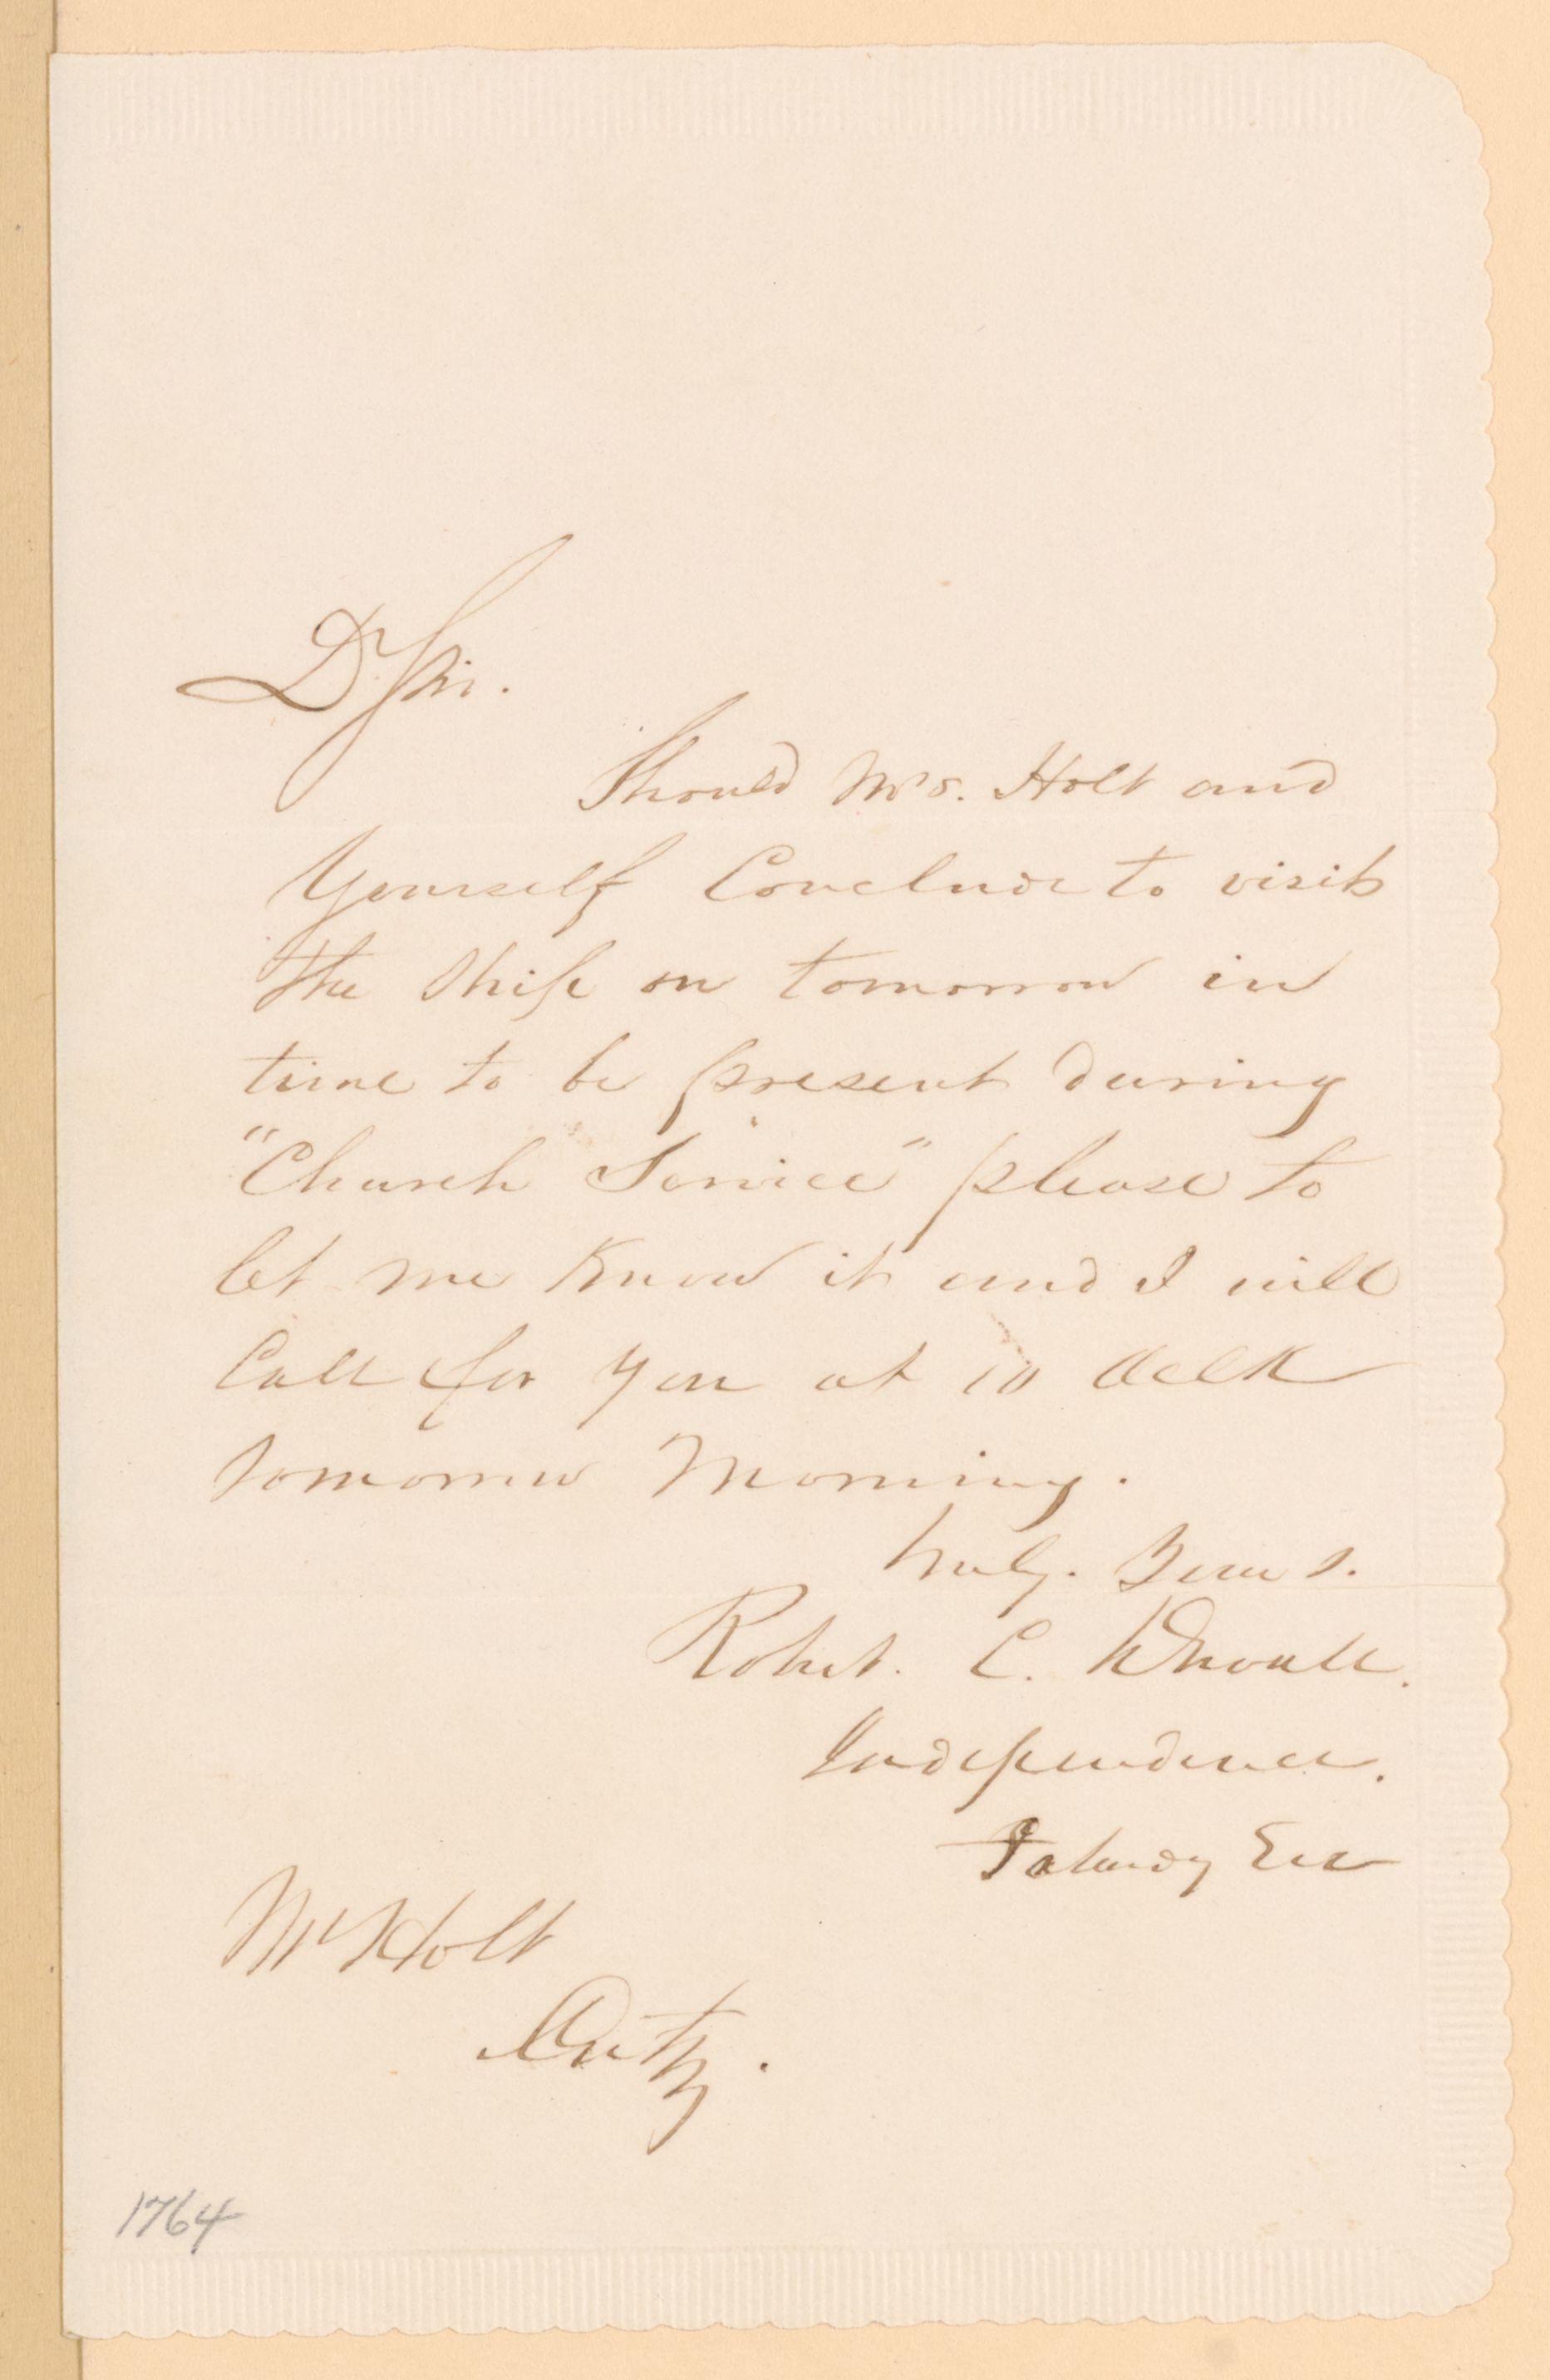 Dr Sir.
Should Mrs. Holt and
Yourself Conclude to visit
the Ship on tomorrow in
time to be present during
"Church Service" please to
let me Know it and I will
Call for you at 10 OClk
tomorrow Morning.
Truly. Yours.
Robert. C.
Independence.
Saturday Eve
Mr Holt
1764